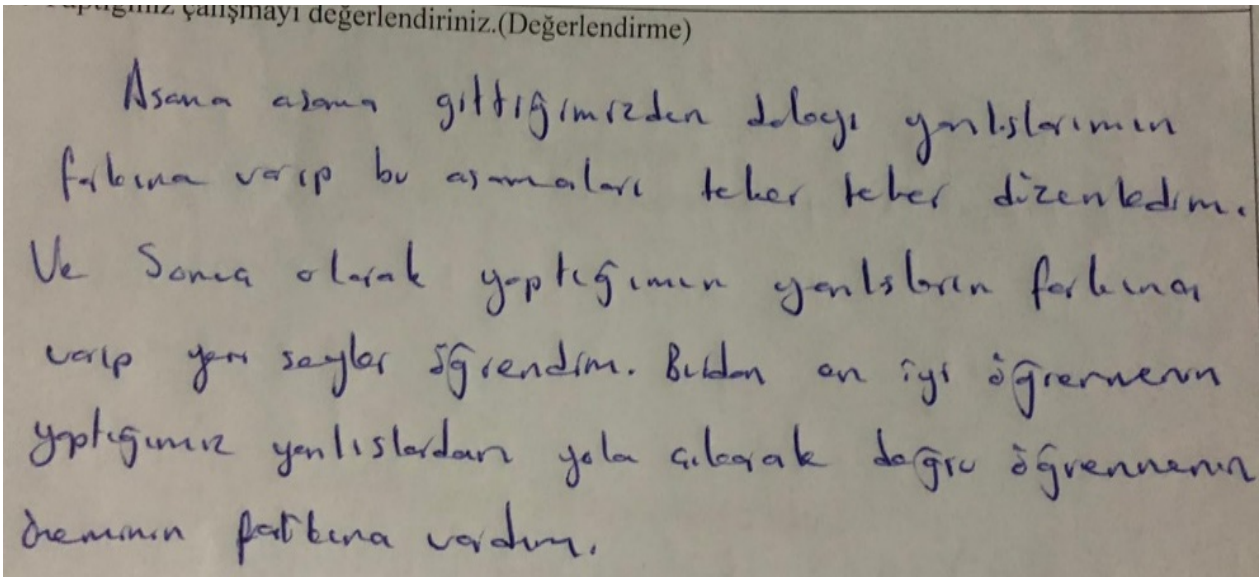 Yaptığınız çalışmayı değerlendiriniz.(Değerlendirme)
Asama asama gittiğimizden dolayı yanlışlarımın
farkına varıp bu aşamaları teker teker düzenledim.
Ve Sonuç olarak yaptığımın yanlışların farkına
varıp yeni şeyler öğrendim. Burdan en iyi öğrenmenin
yaptığımız yanlışlardan yola çıkarak doğru öğrenmenin
öneminin farkına vardım.